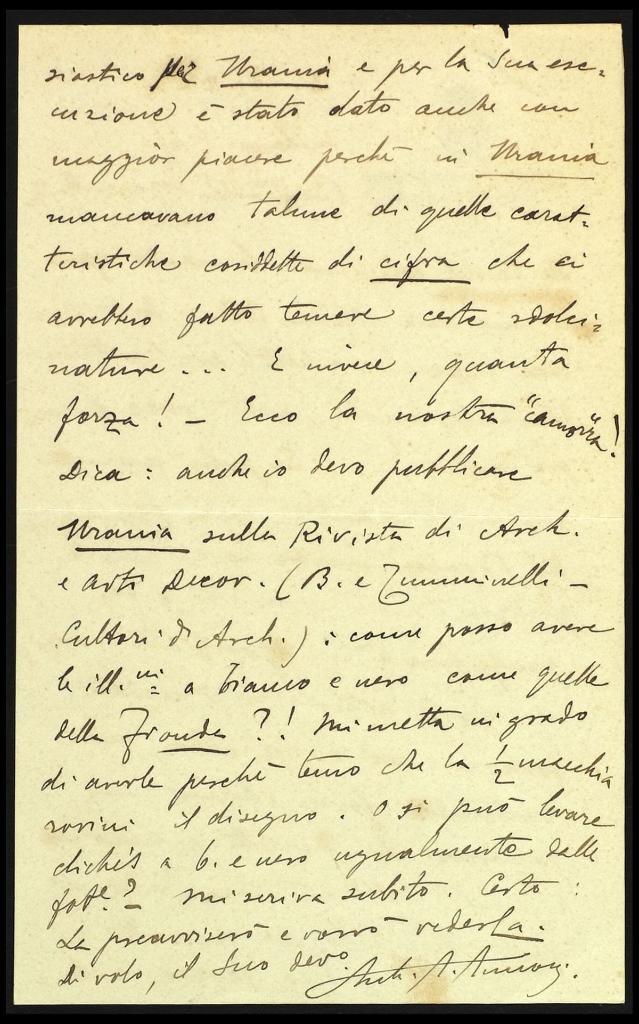 siastico per Urania e per la Sua ese-
cuzione è stato dato anche con
maggior piacere perché in Urania
mancavano talune di quelle carat-
teristiche cosidette di cifra che ci
avrebbero fatto temere certe sdolci-
nature... E invece, quanta
forza! - Ecco la nostra "camorra"!
Dica: anche io devo pubblicare
Urania sulla Rivista di Arch.
e Arti Decor. (B. e Tumminelli -
Cultori di Arch.): come posso avere
le ill.ni a bianco e nero come quelle
della Fionda?! Mi metta in grado
di averle perché temo che la ½ macchia
rovini il disegno. O si può levare
clichés a b. e nero ugualmente dalle
fot.e? - Mi scriva subito. Certo:
La preavviserò e verrò vederla.
Di volo, il Suo dev.o
Arch. A.